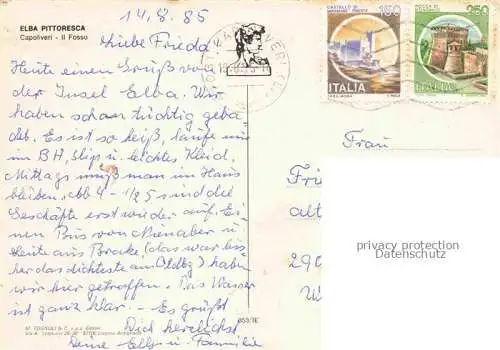 ELBA PITTORESCA
Capoliveri - Il Fosso
14.8.85
Liebe Frieda
Heute einen Gruß von
der Insel Elba. Wir
haben schon tüchtig geba
det. Es ist so heiß, laufe nur
im BH, Slip u. leichtes Kleid.
Mittags muß man im Haus
bleiben, abb 4 - 1/2 5 sind die
Geschäfte erst wieder auf. Ei-
nen Bus von Nienaber u.
Heute aus Brake (das war bis-
her das dichteste am Oldbg) haben
wir hier getroffen. Das Wasser
ist ganz klar. - Es grüßt
Dich herzlichst
Deine Elly u. Familie
CASTELLO DI
150
ITALIA
ROCCA DI
250
ITALIA
Frau
Fri
alt
290
privacy protection
Datenschutz
853/1E